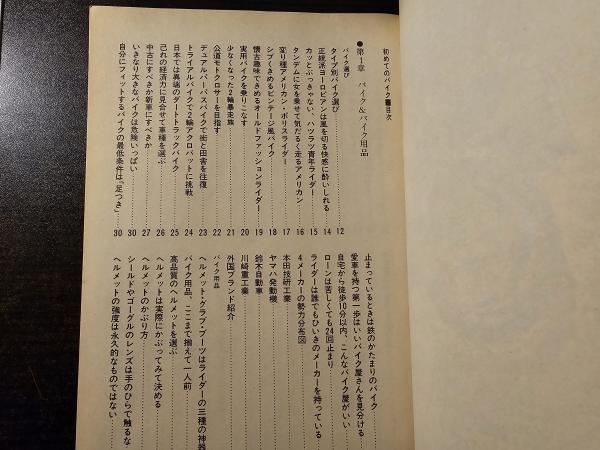 初めてのバイク■目次
●第1章 バイク&バイク用品
バイク選び
タイプ別バイク選び……12
正統派ヨーロピアンは風を切る快感に酔いしれる……14
カッとぶっきゃない、ハツラツ青年ライダー……15
タンデムに女を乗せて気だるく走るアメリカン……16
変り種アメリカン・ポリスライダー……17
シブくきめるビンテージ風バイク……18
懐古趣味できめるオールドファッションライダー……19
実用バイクを乗りこなす……20
少なくなった2輪暴走族……21
公道モトクロサーを目指す……22
デュアルパーパスバイクで街と田舎を往復……23
トライアルバイクで2輪アクロバットに挑戦……24
日本では異端のダートトラックバイク……25
己れの経済力に見合せて車種を選ぶ……26
中古にすべきか新車にすべきか……27
いきなり大きなバイクは危険いっぱい……30
自分にフィットするバイクの最低条件は「足つき」……30
止まっているときは鉄のかたまりのバイク
愛車を持つ第一歩はいいバイク屋さんを見分ける……
自宅から徒歩10分以内、こんなバイク屋がいい
ローンは苦しくても24回止まり……
ライダーは誰でもひいきのメーカーを持っている……
4メーカーの勢力分布図……
本田技研工業……
ヤマハ発動機……
鈴木自動車……
川崎重工業……
外国ブランド紹介……
バイク用品
ヘルメット・グラブ・ブーツはライダーの三種の神器
バイク用品、ここまで揃えて一人前……
高品質のヘルメットを選ぶ……
ヘルメットは実際にかぶってみて決める……
ヘルメットのかぶり方……
シールドやゴーグルのレンズは手のひらで触るな…
ヘルメットの強度は永久的なものではない……